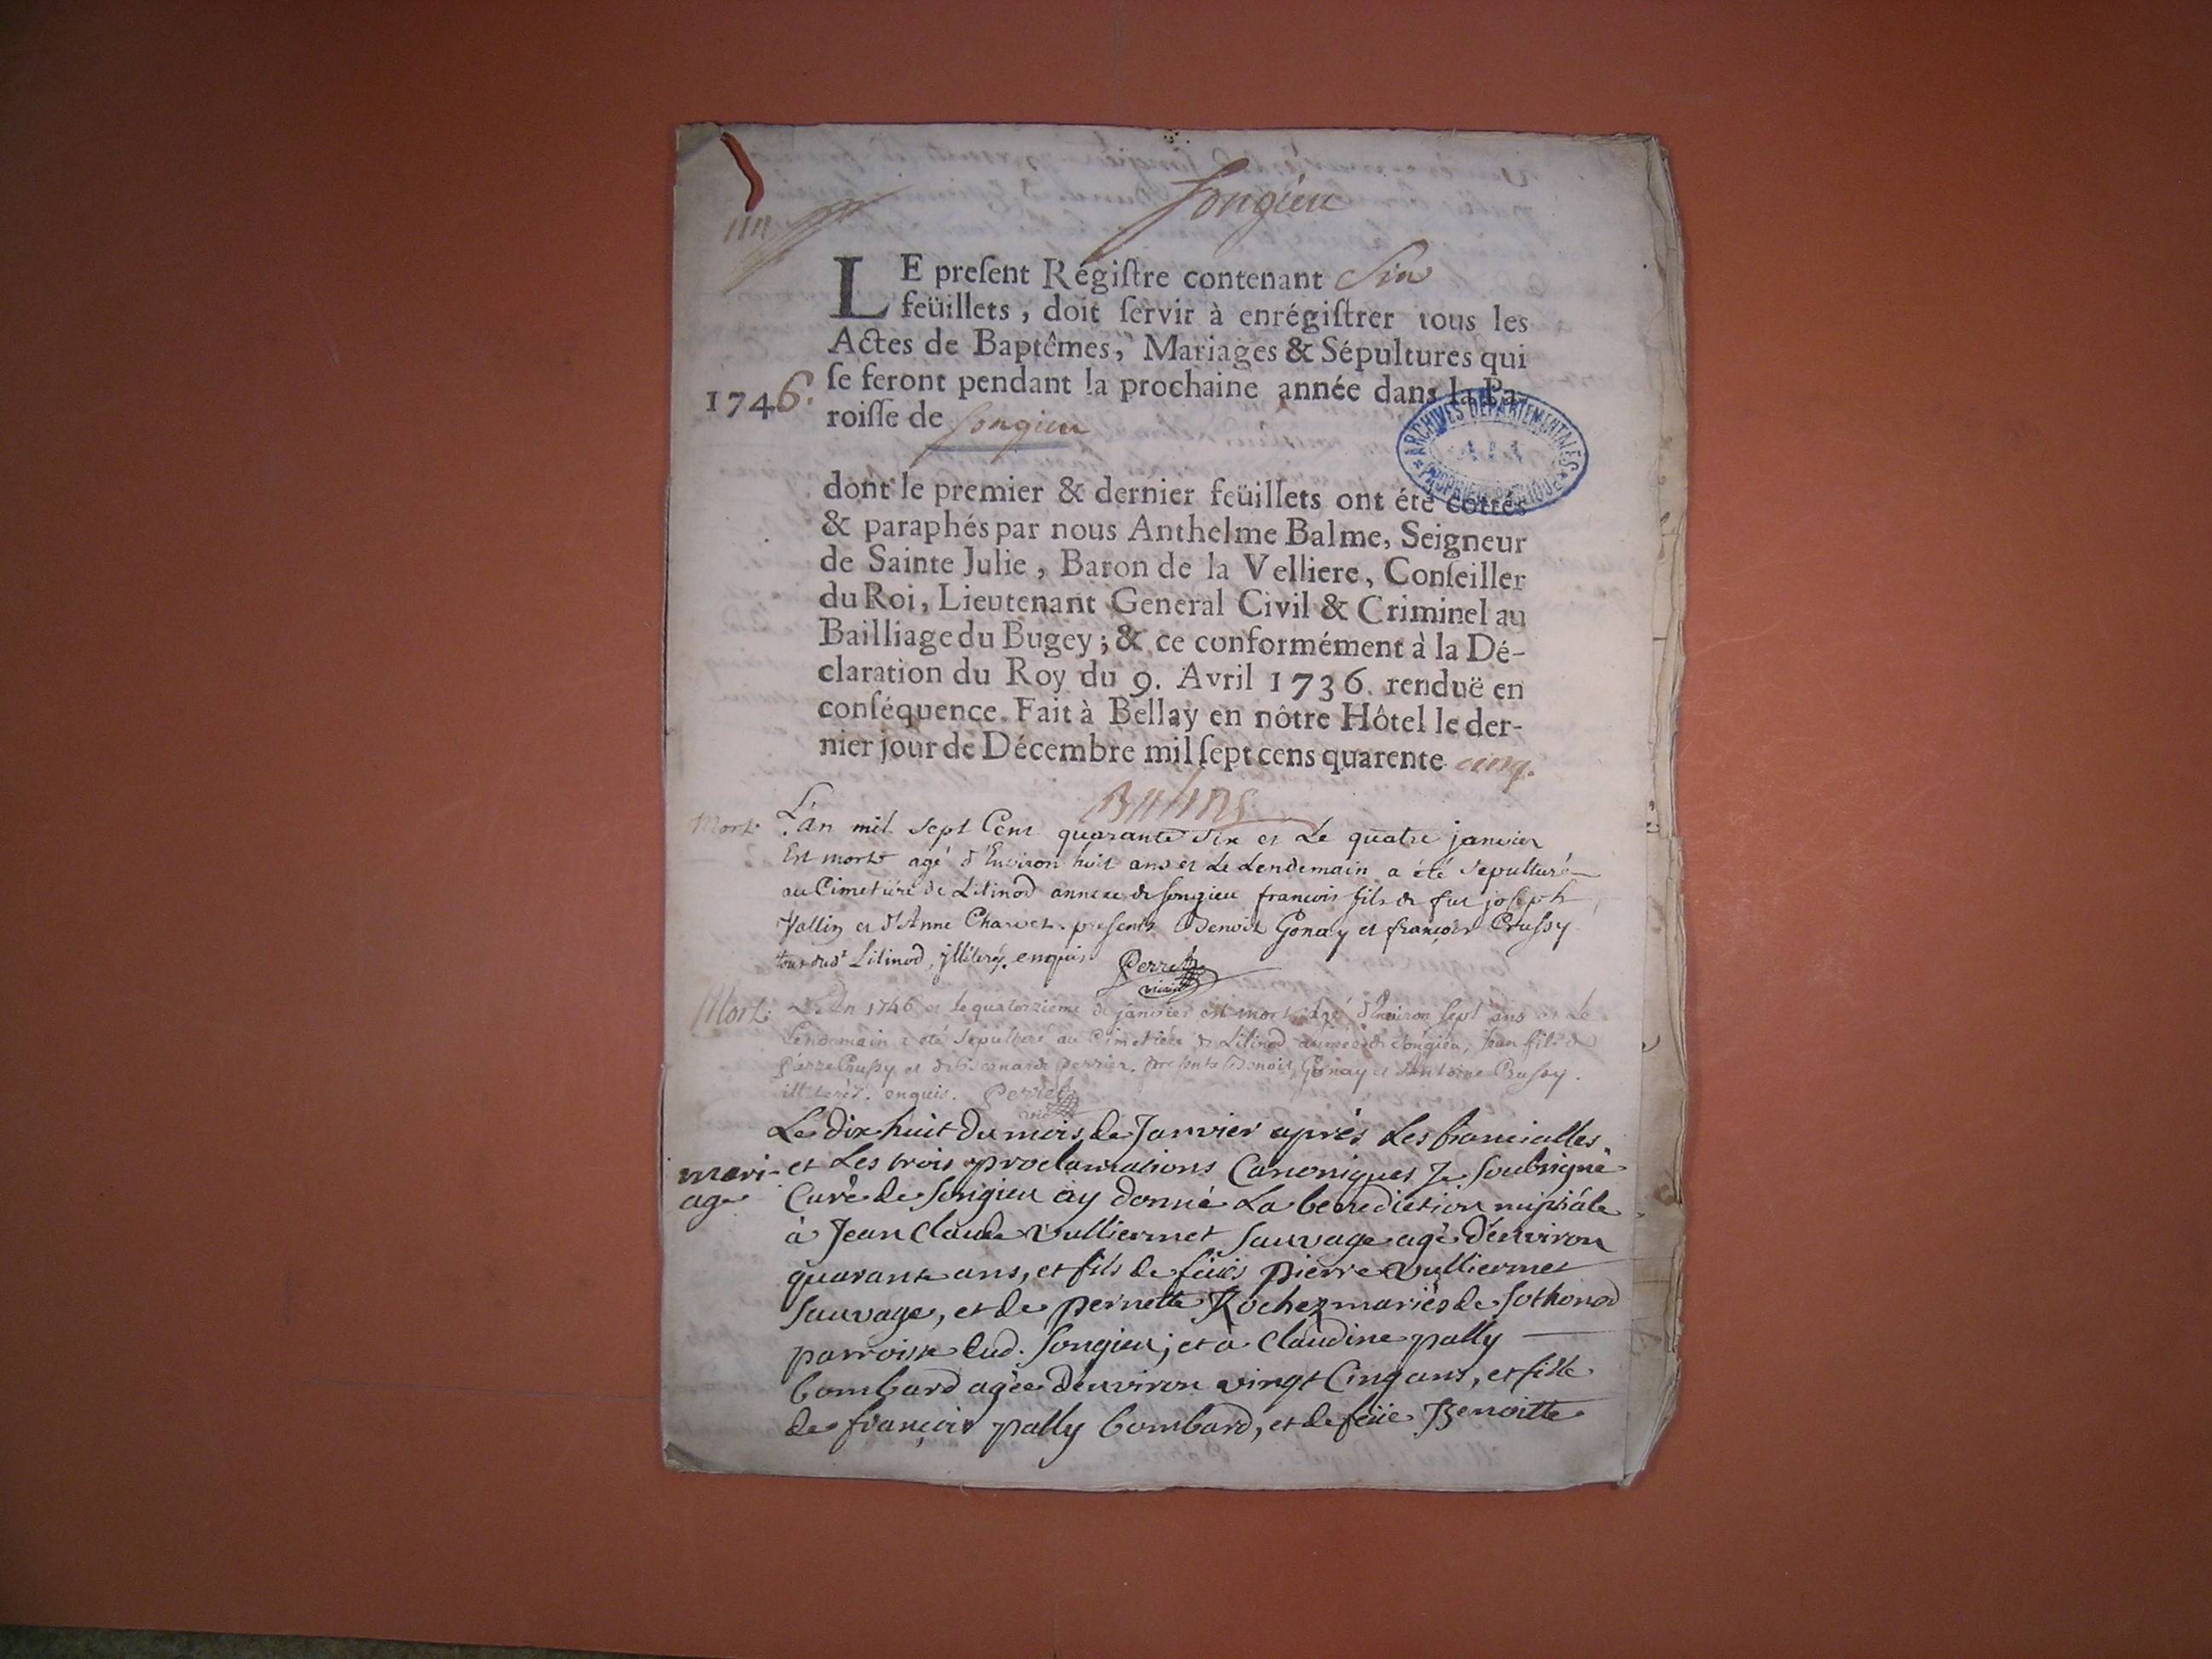 Songieu
LE preſent Régiſtre contenant Six
feüillets, doit ſervir à enrégiſtrer tous les
Actes de Baptêmes, Mariages & Sépultures qui
ſe feront pendant la prochaine année dans la Pa-
1746.
roiſſe de Songieu
ARCHIVES DEPARTEMENTALES
AIN
PROPRIÉTÉ PUBLIQUE
dont le premier & dernier feüillets ont été cottés
& paraphés par nous Anthelme Balme, Seigneur
de Sainte Julie, Baron de la Velliere, Conſeiller
du Roi, Lieutenant General Civil & Criminel au
Bailliage du Bugey; & ce conformément à la Dé-
claration du Roy du 9. Avril 1736. renduë en
conſéquence. Fait à Bellay en nôtre Hôtel le der-
nier jour de Décembre mil ſept cens quarente cinq.
Balme
Mort L'an mil sept Cent quarante six et Le quatre janvier
Est mort agé d'Environ huit ans et Le Lendemain a été sepulturé
au Cimetière de Litinod annexe de Songieu francois fils de fut joseph
Vallin et d'Anne Charvet. presents Benoit Gonay et françois Crussy
tous dud Litinod, jlliterés enquis Perret
vicaire
Mort L'an 1746 et le quatorzieme de janvier est mort agé d'Environ sept ans et Le
Lendemain a été sepulturé au Cimetière de Litinod annexe de Songieu, Jean fils de
Pierre Crussy et de Bernarde Perrier. presents Benoit Gonay et Antoine Crussy.
illiterés. enquis. Perret
vic
Le dix huit du mois de Janvier après Les fiancialles
mari- et Les trois proclamations Canoniques Je Soubsigné
age Curé de Songieu ay donné La benediction nuptiale
à Jean Claude Vulliermet Sauvage agé d'environ
quarante ans, et fils de feüs pierre Vulliermet
Sauvage, et de pernette Rochez mariés de Sothonod
parroisse dud. Songieu; et à Claudine pally
bombard agée d'environ vingt Cinq ans, et fille
de françois pally bombard, et de feüe Benoitte